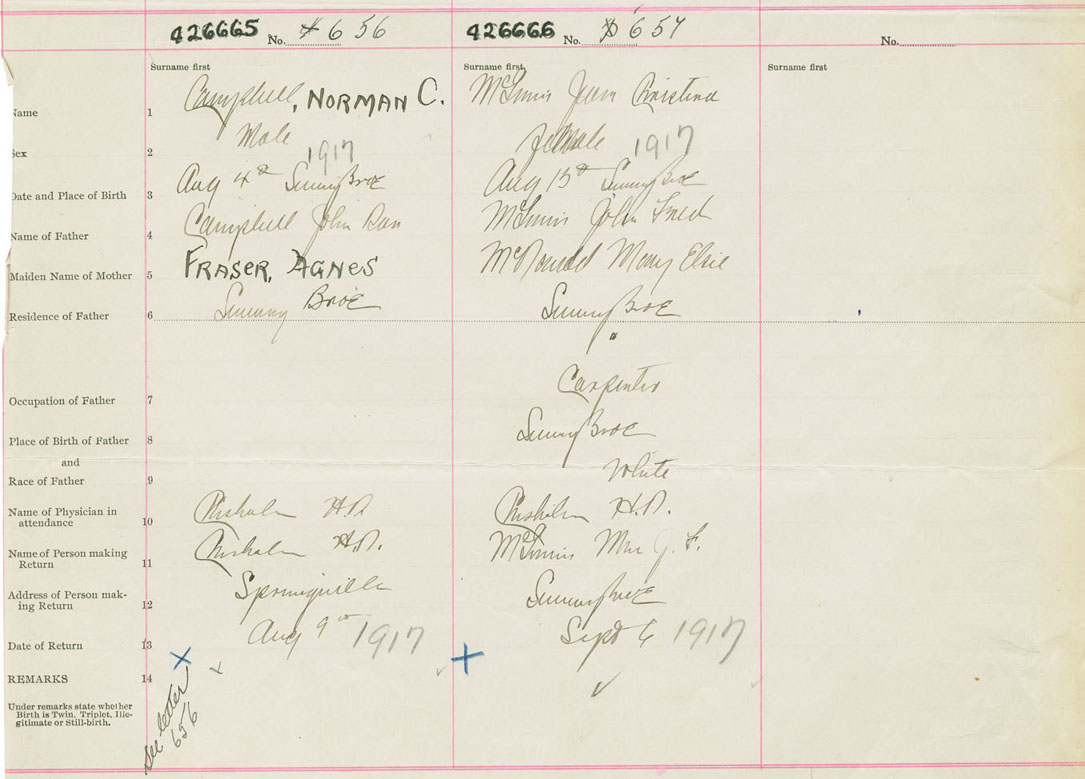 426665 No. 656 426666 No. 657 No.
Surname first Surname first Surname first
Name 1 Campbell, NORMAN C. McInnis Jean Christina
Sex 2 Male Female
1917 1917
Date and Place of Birth 3 Aug 4th SunnyBrae Aug 15th SunnyBrae
Name of Father 4 Campbell John Dan McInnis John Fred
Maiden Name of Mother 5 FRASER, AGNES McDonald Mary Elsie
Residence of Father 6 Sunny Brae SunnyBrae
"
Occupation of Father 7 Carpenter
Place of Birth of Father 8 SunnyBrae
and
Race of Father 9 White
Name of Physician in
attendance 10 Chisholm H.D. Chisholm H.D.
Name of Person making
Return 11 Chisholm H.D. McInnis Mrs J. F.
Address of Person mak-
ing Return 12 Springville SunnyBrae
Date of Return 13 Aug 9th 1917 Sept 6 1917
REMARKS 14
Under remarks state whether
Birth is Twin, Triplet, Ille-
gitimate or Still-birth.
See letter
656